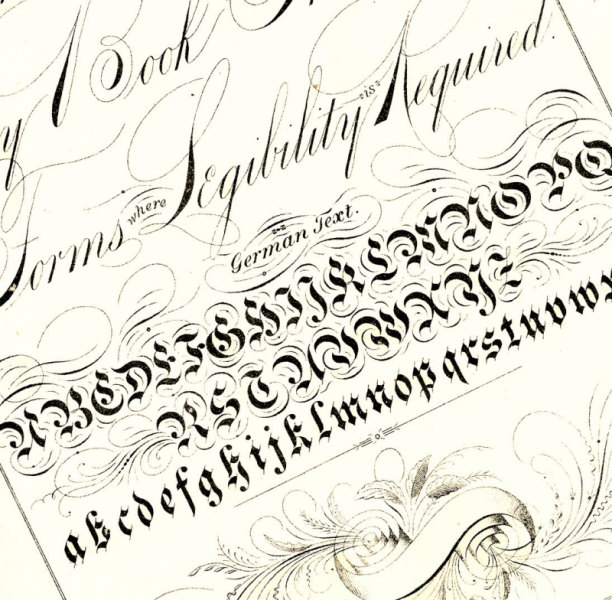 y A Book
Forms where Legibility is Required.
German Text.
ABCDEFGHIJKLMNOPQ
RSTUVWXYZ
abcdefghijklmnopqrstuvwx